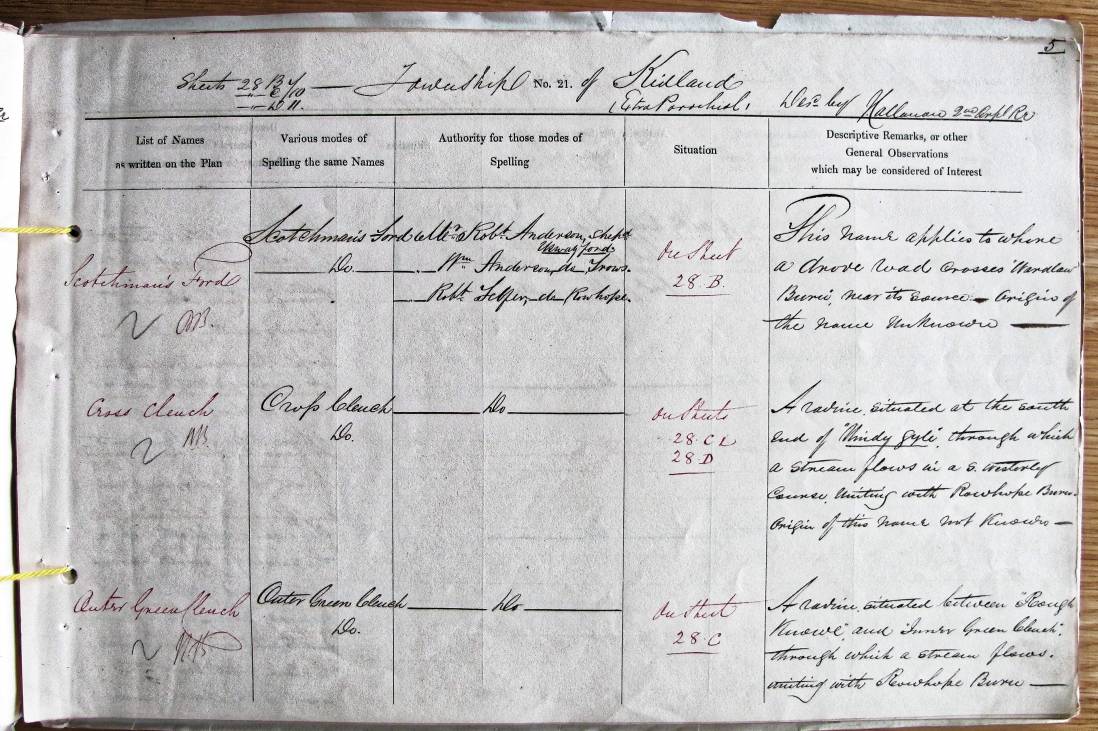 5
Sheets 28 B — Township No. 21. of Kidland
(Extra Parochial) Desd by 2nd Corpl RE
List of Names
as written on the Plan
Various modes of
Spelling the same Names
Authority for those modes of
Spelling
Situation
Descriptive Remarks, or other
General Observations
which may be considered of Interest
Scotchman's Ford
Scotchman's Ford
Do.
Mr. Robt. Anderson, Shepd
Usway ford
Wm Anderson do Trows.
Robt Telfer do Rowhope.
On Sheet
28 B.
This name applies to where
a drove road crosses
Burn, near its source — Origin of
the name Unknown —
Cross Cleuch
Cross Cleuch
Do.
Do
On Sheets
28 C &
28 D
A ravine, situated at the south
end of "Windy Gyle", through which
a stream flows in a S. Westerly
Course, Uniting with Rowhope Burn.
Origin of this name not Known —
Outer Green Cleuch
Outer Green Cleuch
Do.
Do
On Sheet
28 C
A ravine, situated between "Rough
Knowe", and "Inner Green Cleuch".
through which a stream flows.
uniting with Rowhope Burn —